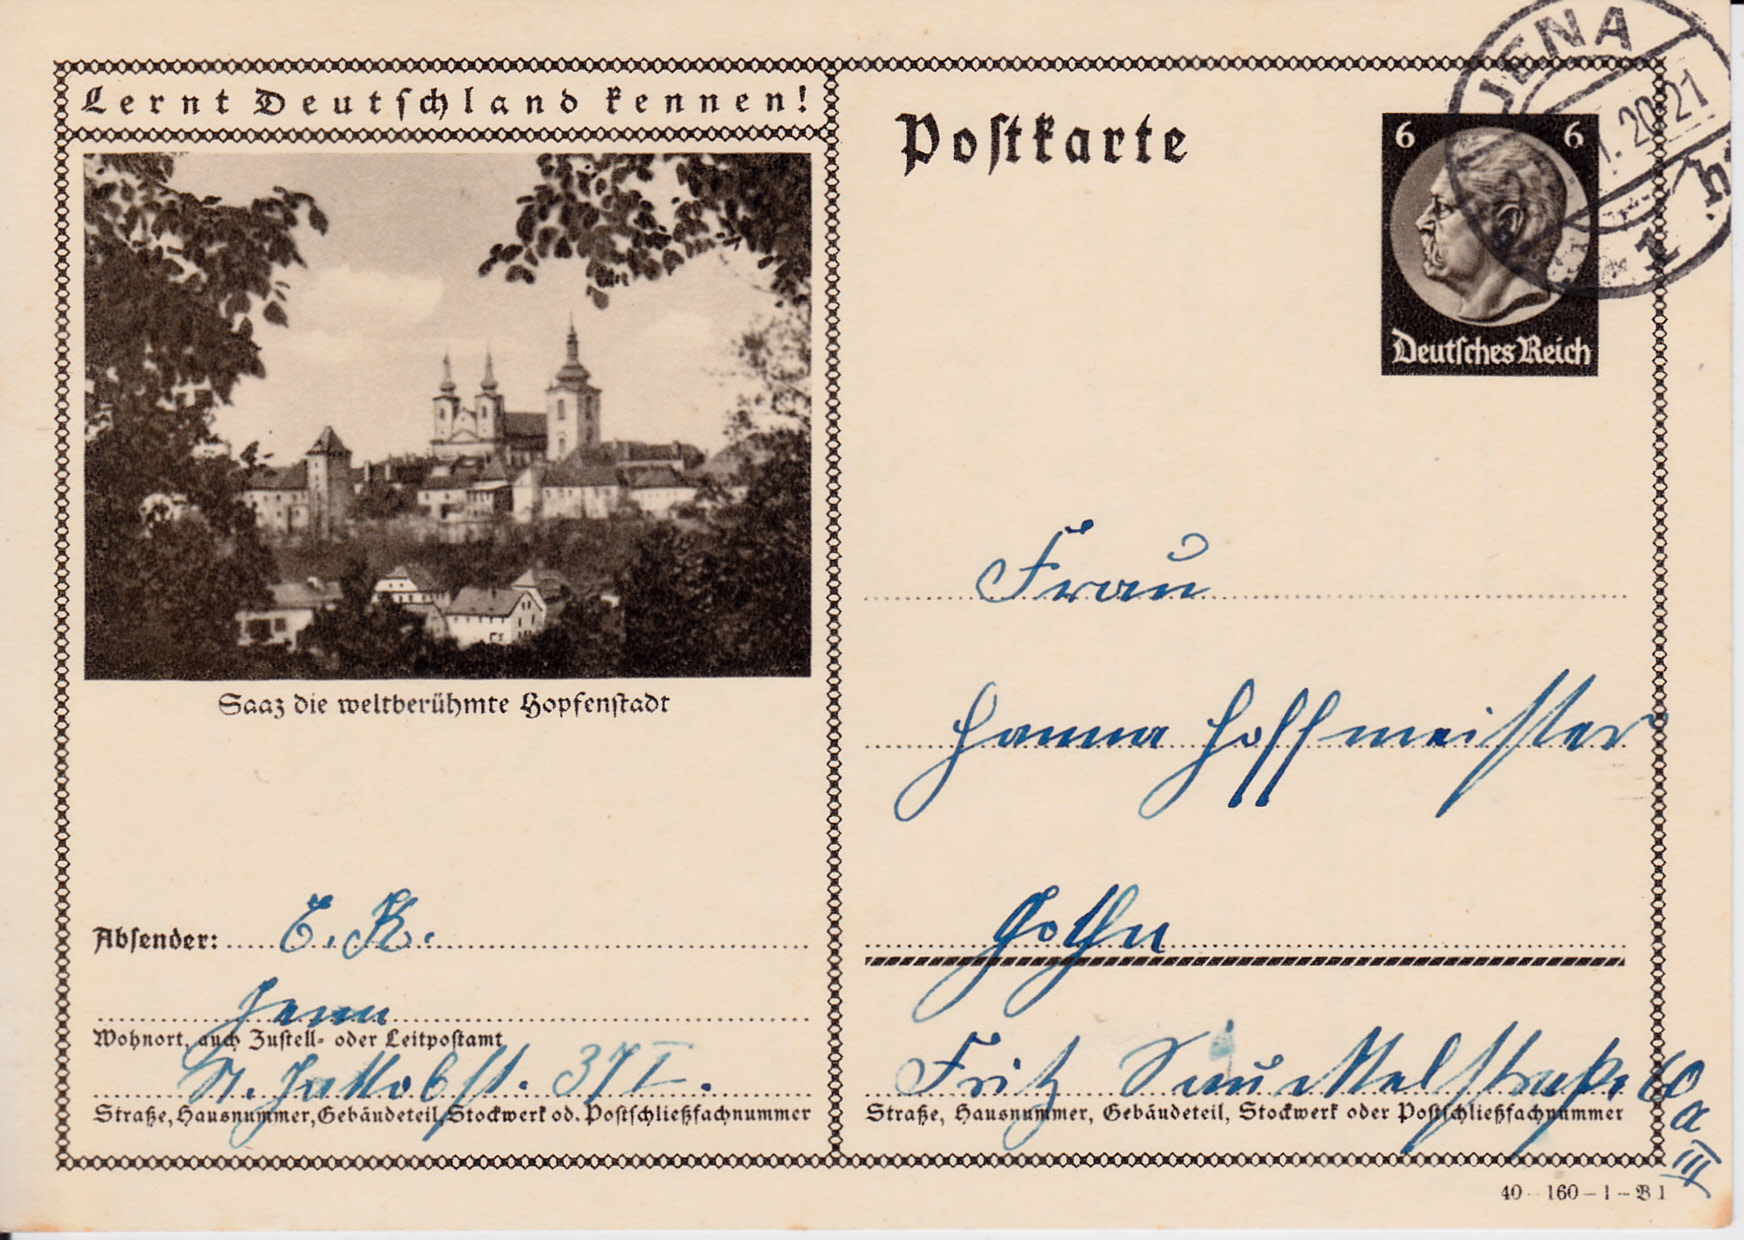 Lernt Deutschland kennen!
Saaz die weltberühmte Hopfenstadt
Absender: E. K.
Jena
Wohnort, auch Zustell- oder Leitpostamt
St. Jakobst. 37 I.
Straße, Hausnummer, Gebäudeteil, Stockwerk od. Postschließfachnummer
Postkarte
JENA
20-21
1 h
6 6
Deutsches Reich
Frau
Hanna Hoffmeister
Gotha
Fritz Sauckelstraße 60
a
III
Straße, Hausnummer, Gebäudeteil, Stockwerk oder Postschließfachnummer
40 - 160 - 1 - B 1